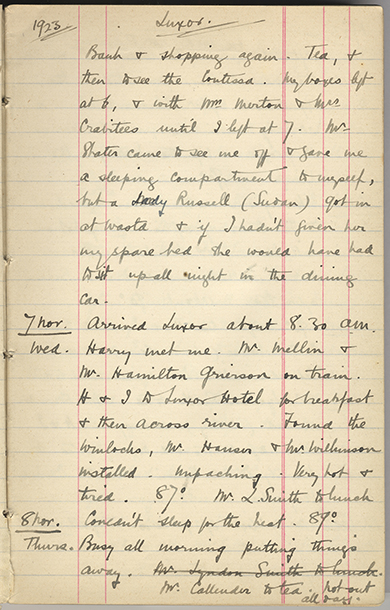 1923 Luxor.
Bank & shopping again. Tea, &
then to see the Contessa. My boxes left
at 6, & with Mr. Merton & Mrs
Crabitees until I left at 7. Mr.
Slater came to see me off & gave me
a sleeping compartment to myself,
but a Lady Russell (Susan) got in
at Wasta & if I hadn't given her
my spare bed she would have had
to sit up all night in the dining
car.
7 Nov. Arrived Luxor about 8.30 am.
Wed. Harry met me. Mr. Mellin &
Mr. Hamilton Grierson on train.
H & I to Luxor Hotel for breakfast
& then across river. Found the
Winlocks, Mr. Hauser & Mr Wilkinson
installed. Unpacking. Very hot &
tired. 87° Mr. L. Smith to lunch
8 Nov. Couldn't sleep for the heat. 89°
Thurs. Busy all morning putting things
away. Mr. Lyndon Smith to lunch.
Mr. Callender to tea. not out
all day.